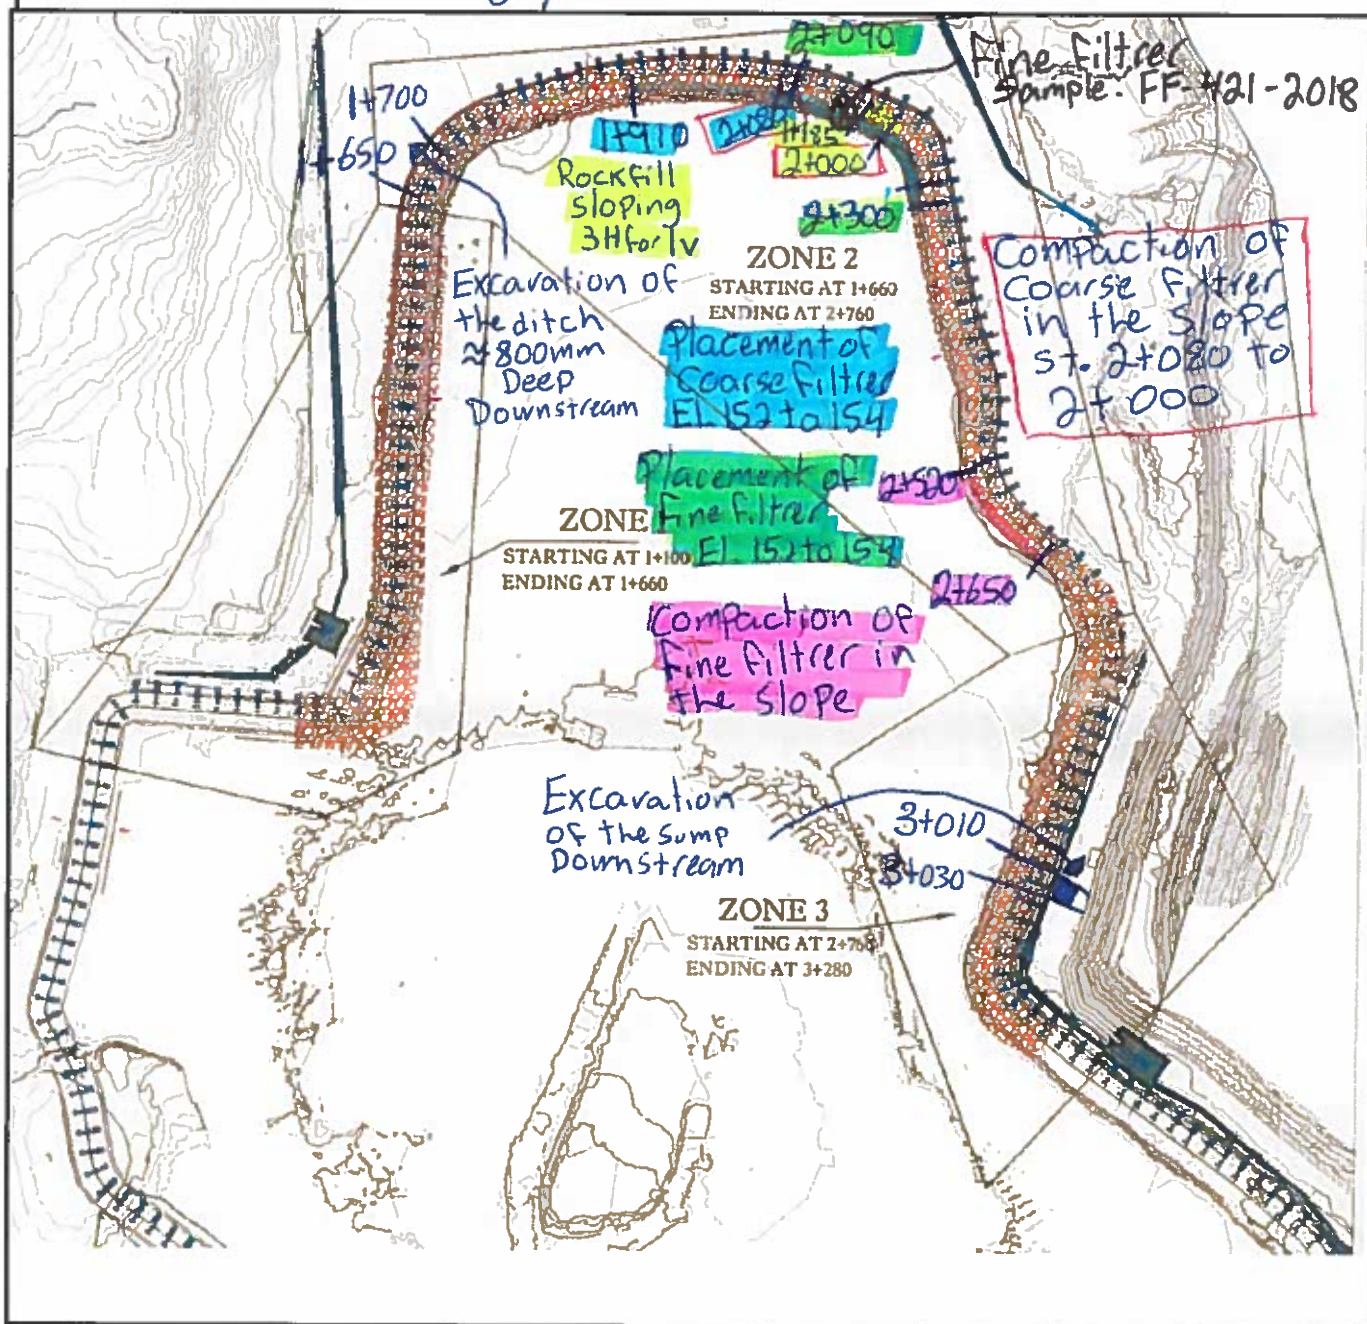 2+090
Fine filtrer
Sample: FF-421-2018
1+700
1+650
1+910
2+080
1+185
2+000
Rockfill
Sloping
3H for 1v
2+300
ZONE 2
STARTING AT 1+660
ENDING AT 2+760
Compaction of
Coarse filtrer
in the slope
st. 2+080 to
2+000
Excavation of
the ditch
≈ 800mm
Deep
Downstream
Placement of
Coarse filtrer
El. 152 to 154
Placement of
Fine filtrer
El. 152 to 154
2+520
ZONE
STARTING AT 1+100
ENDING AT 1+660
2+650
Compaction of
fine filtrer in
the slope
Excavation
of the sump
Downstream
3+010
3+030
ZONE 3
STARTING AT 2+760
ENDING AT 3+280